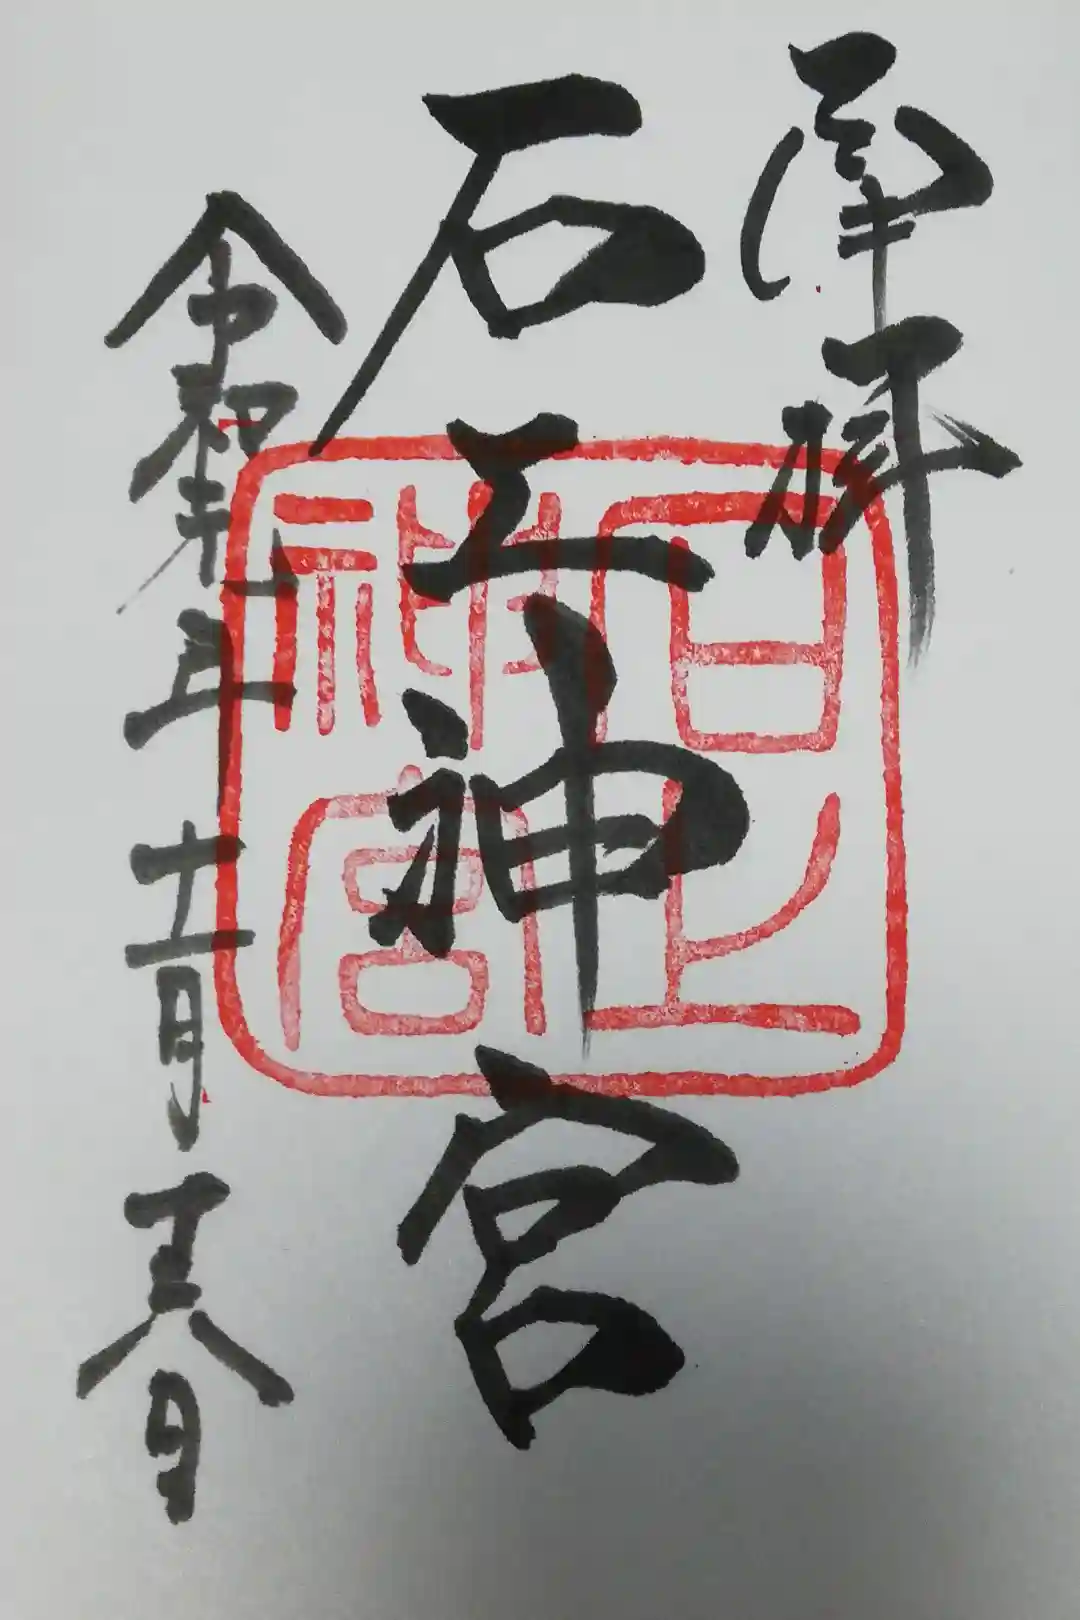 奉拝
石上神宮
令和年十一月八日
石上
神宮